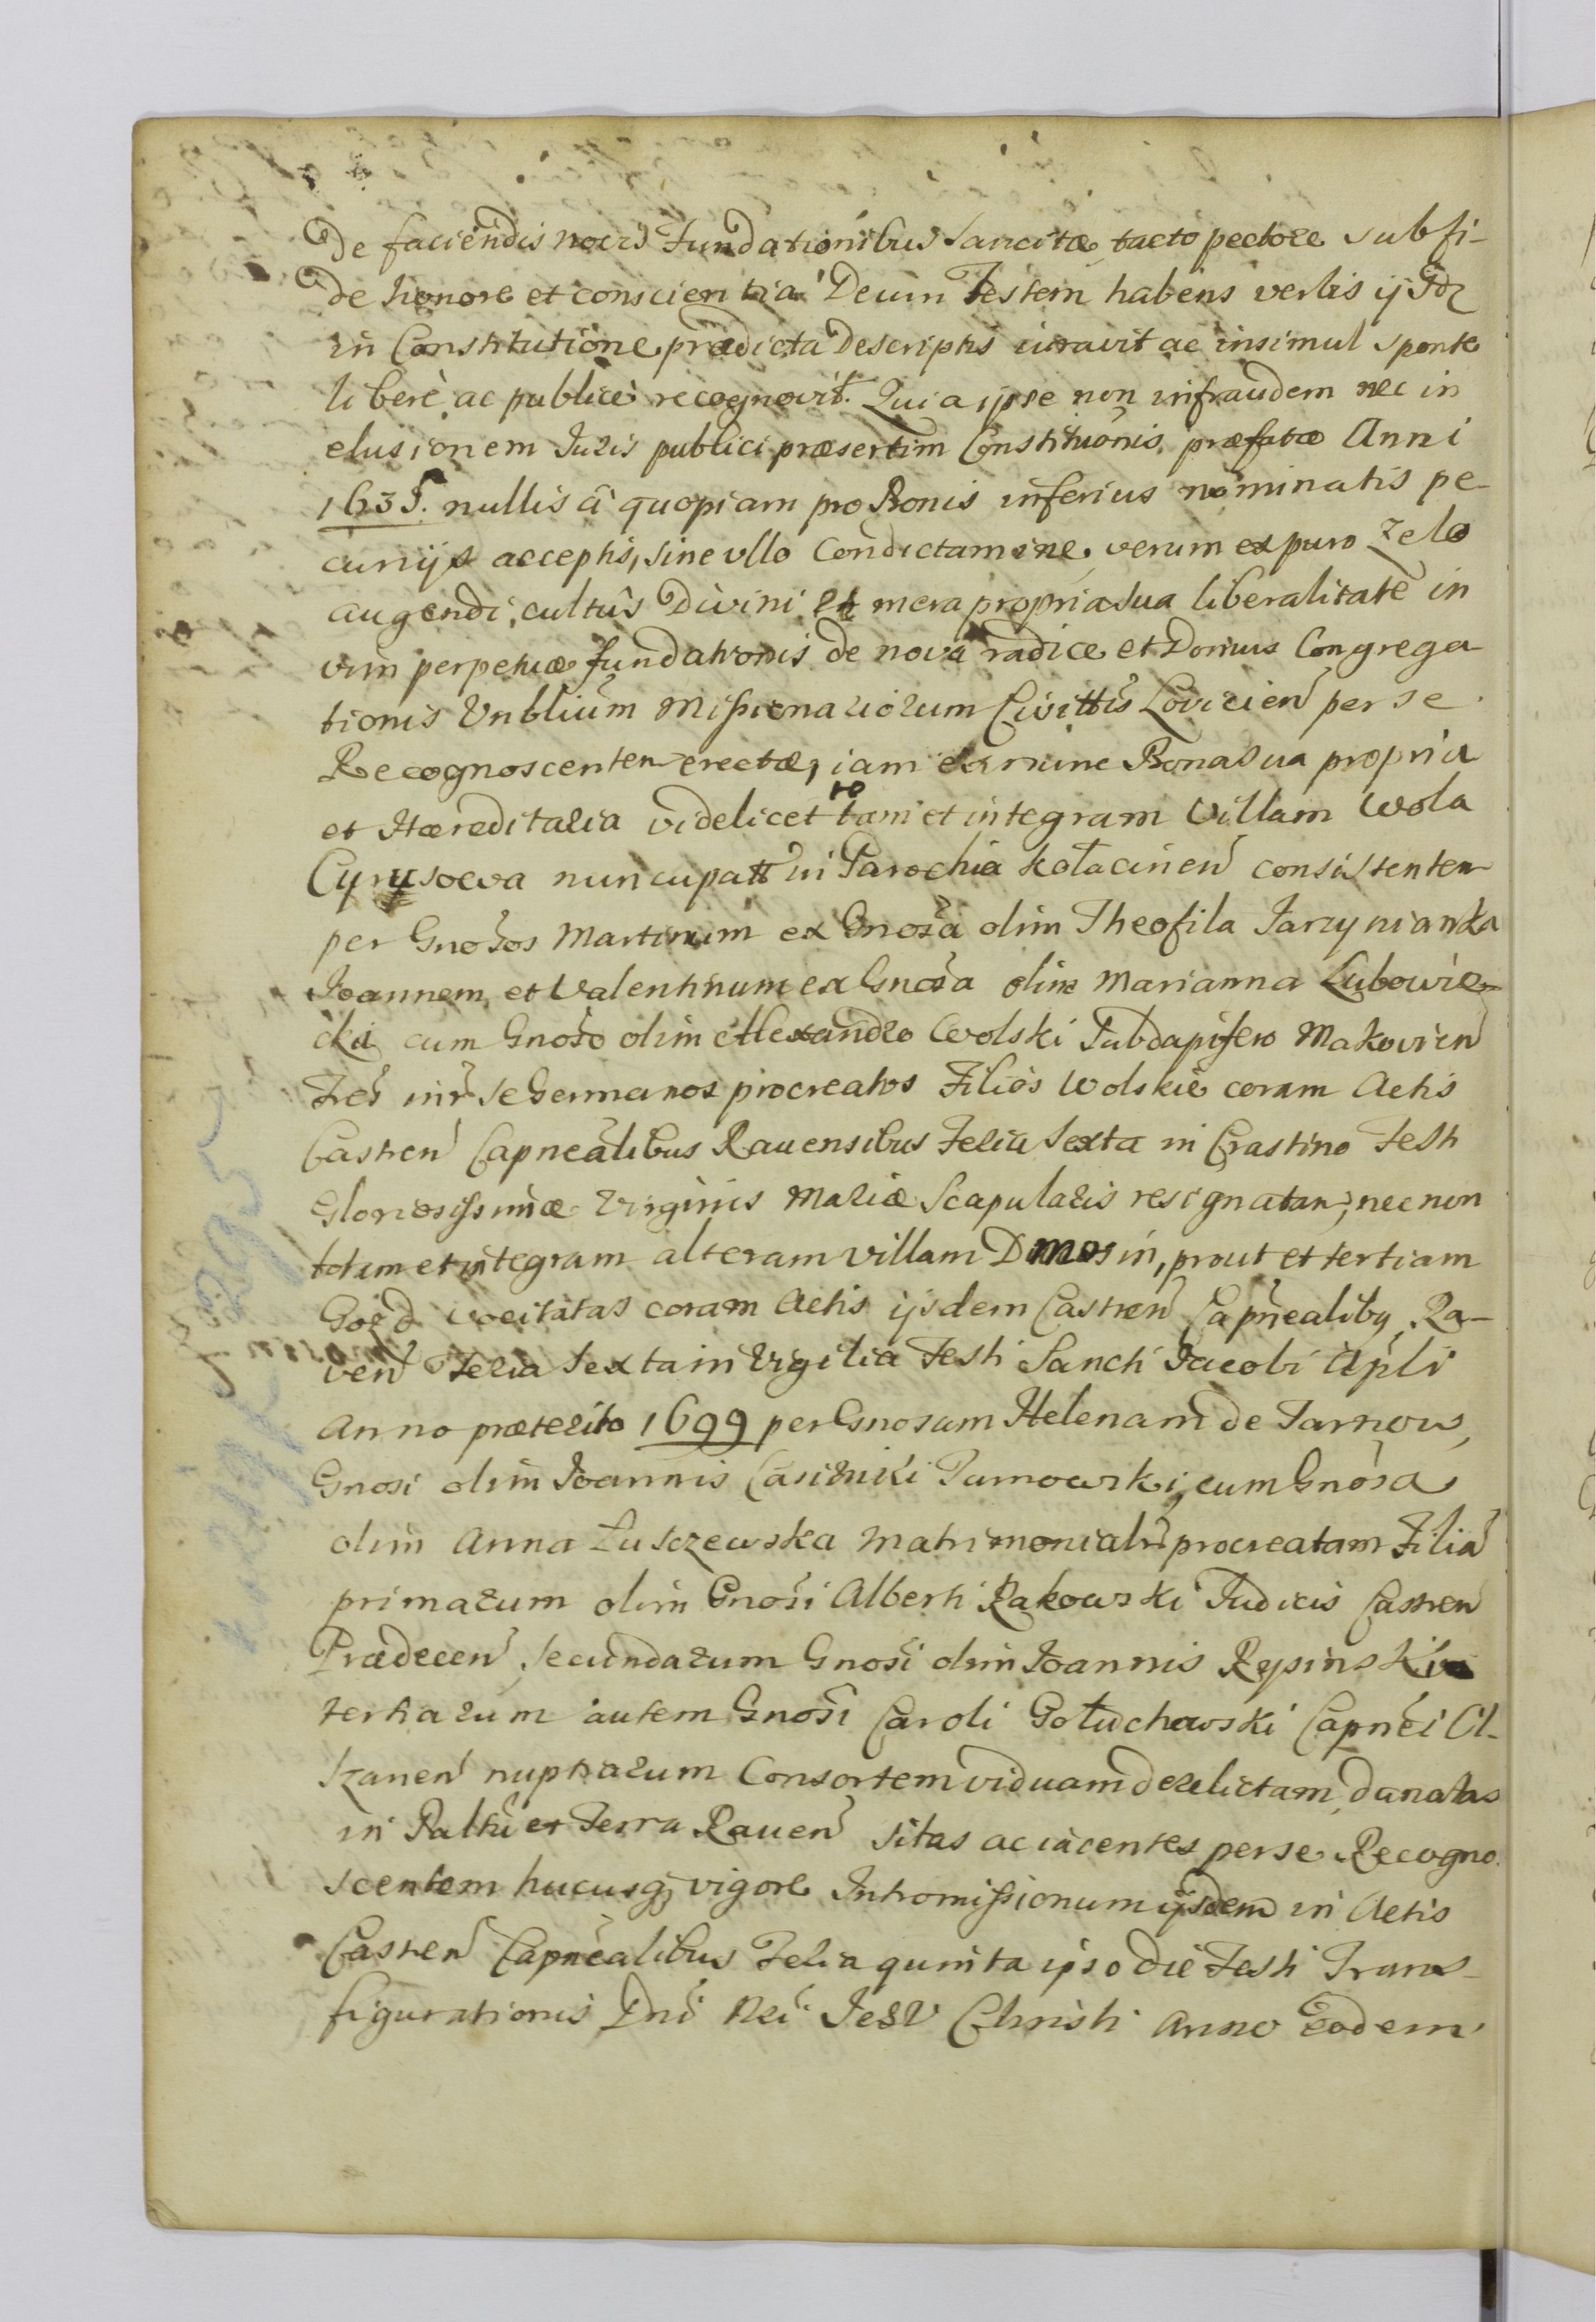 De faciendis novis Fundationibus sancitæ tacto pectore sub fi-
de honore et conscientia Deum Testem habens verbis ijsdẽ
in Constitutione prædicta Descriptis iuravit ac insimul sponte
libere ac publice recognovit. Quia ipse non in fraudem nec in
elusionem Juris publici præsertim Constituõnis præfatæ Anni
1635. nullis à quopiam pro Bonis inferius nominatis pe-
cunijs acceptis, sine ullo Condictamine, verum ex puro zelo
augendi cultus Divini et mera propria sua liberalitate in
vim perpetuæ fundationis de nova radice et Domus Congrega
tionis Vnblium Missionariorum Civittis Lovicien per se
Recognoscentem erectæ, iam ex nunc Bona sua propria
et Hæreditaria videlicet totam et integram Villam Wola
Cyrusowa nuncupatt in Parochia Kołacinen consistentem
per Gnosos Martinum ex Gnosa olim Theofila Jarzynianka
Joannem et Valentinum ex Gnosa olim Marianna Lubowie-
cka cum Gnoso olim Alexandro Wolski Subdapifero Makovien
Fres intr se Germanos procreatos Filios Wolskie coram Actis
Castren Capnealibus Ravensibus Feria sexta in Crastino Festi
Gloriosissimæ Virginis Mariæ Scapularis resignatam, nec non
totam et integram alteram villam Dmosin, prout et tertiam
vocitatas coram Actis ijsdem Castren Capnealibq Ra-
ven Feria sexta in Vigilia Festi Sancti Jacobi Apli
Anno præterito 1699 per Gnosam Helenam de Tarnow,
Gnosi olim Joannis Tarnowski, cum Gnosa
olim Anna Łuszczewska Matrimonialr procreatam Filiã
primarum olim Gnosi Alberti Rakowski Judicis Castren
Prædecen, secundarum Gnosi olim Joannis Repinski
tertiarum autem Gnosi Caroli Gołuchowski Capnei Ol-
kzanen nuptiarum Consortem viduam derelictam, donatas
in Palttu et Terra Raven sitas ac iacentes per se Recogno
scentem hucusq vigore Intromissionum ijsdem in Actis
Castren Capnealibus Feria quinta ipso die Festi Trans-
figurationis Dni Nri Jesu Christi Anno eodem